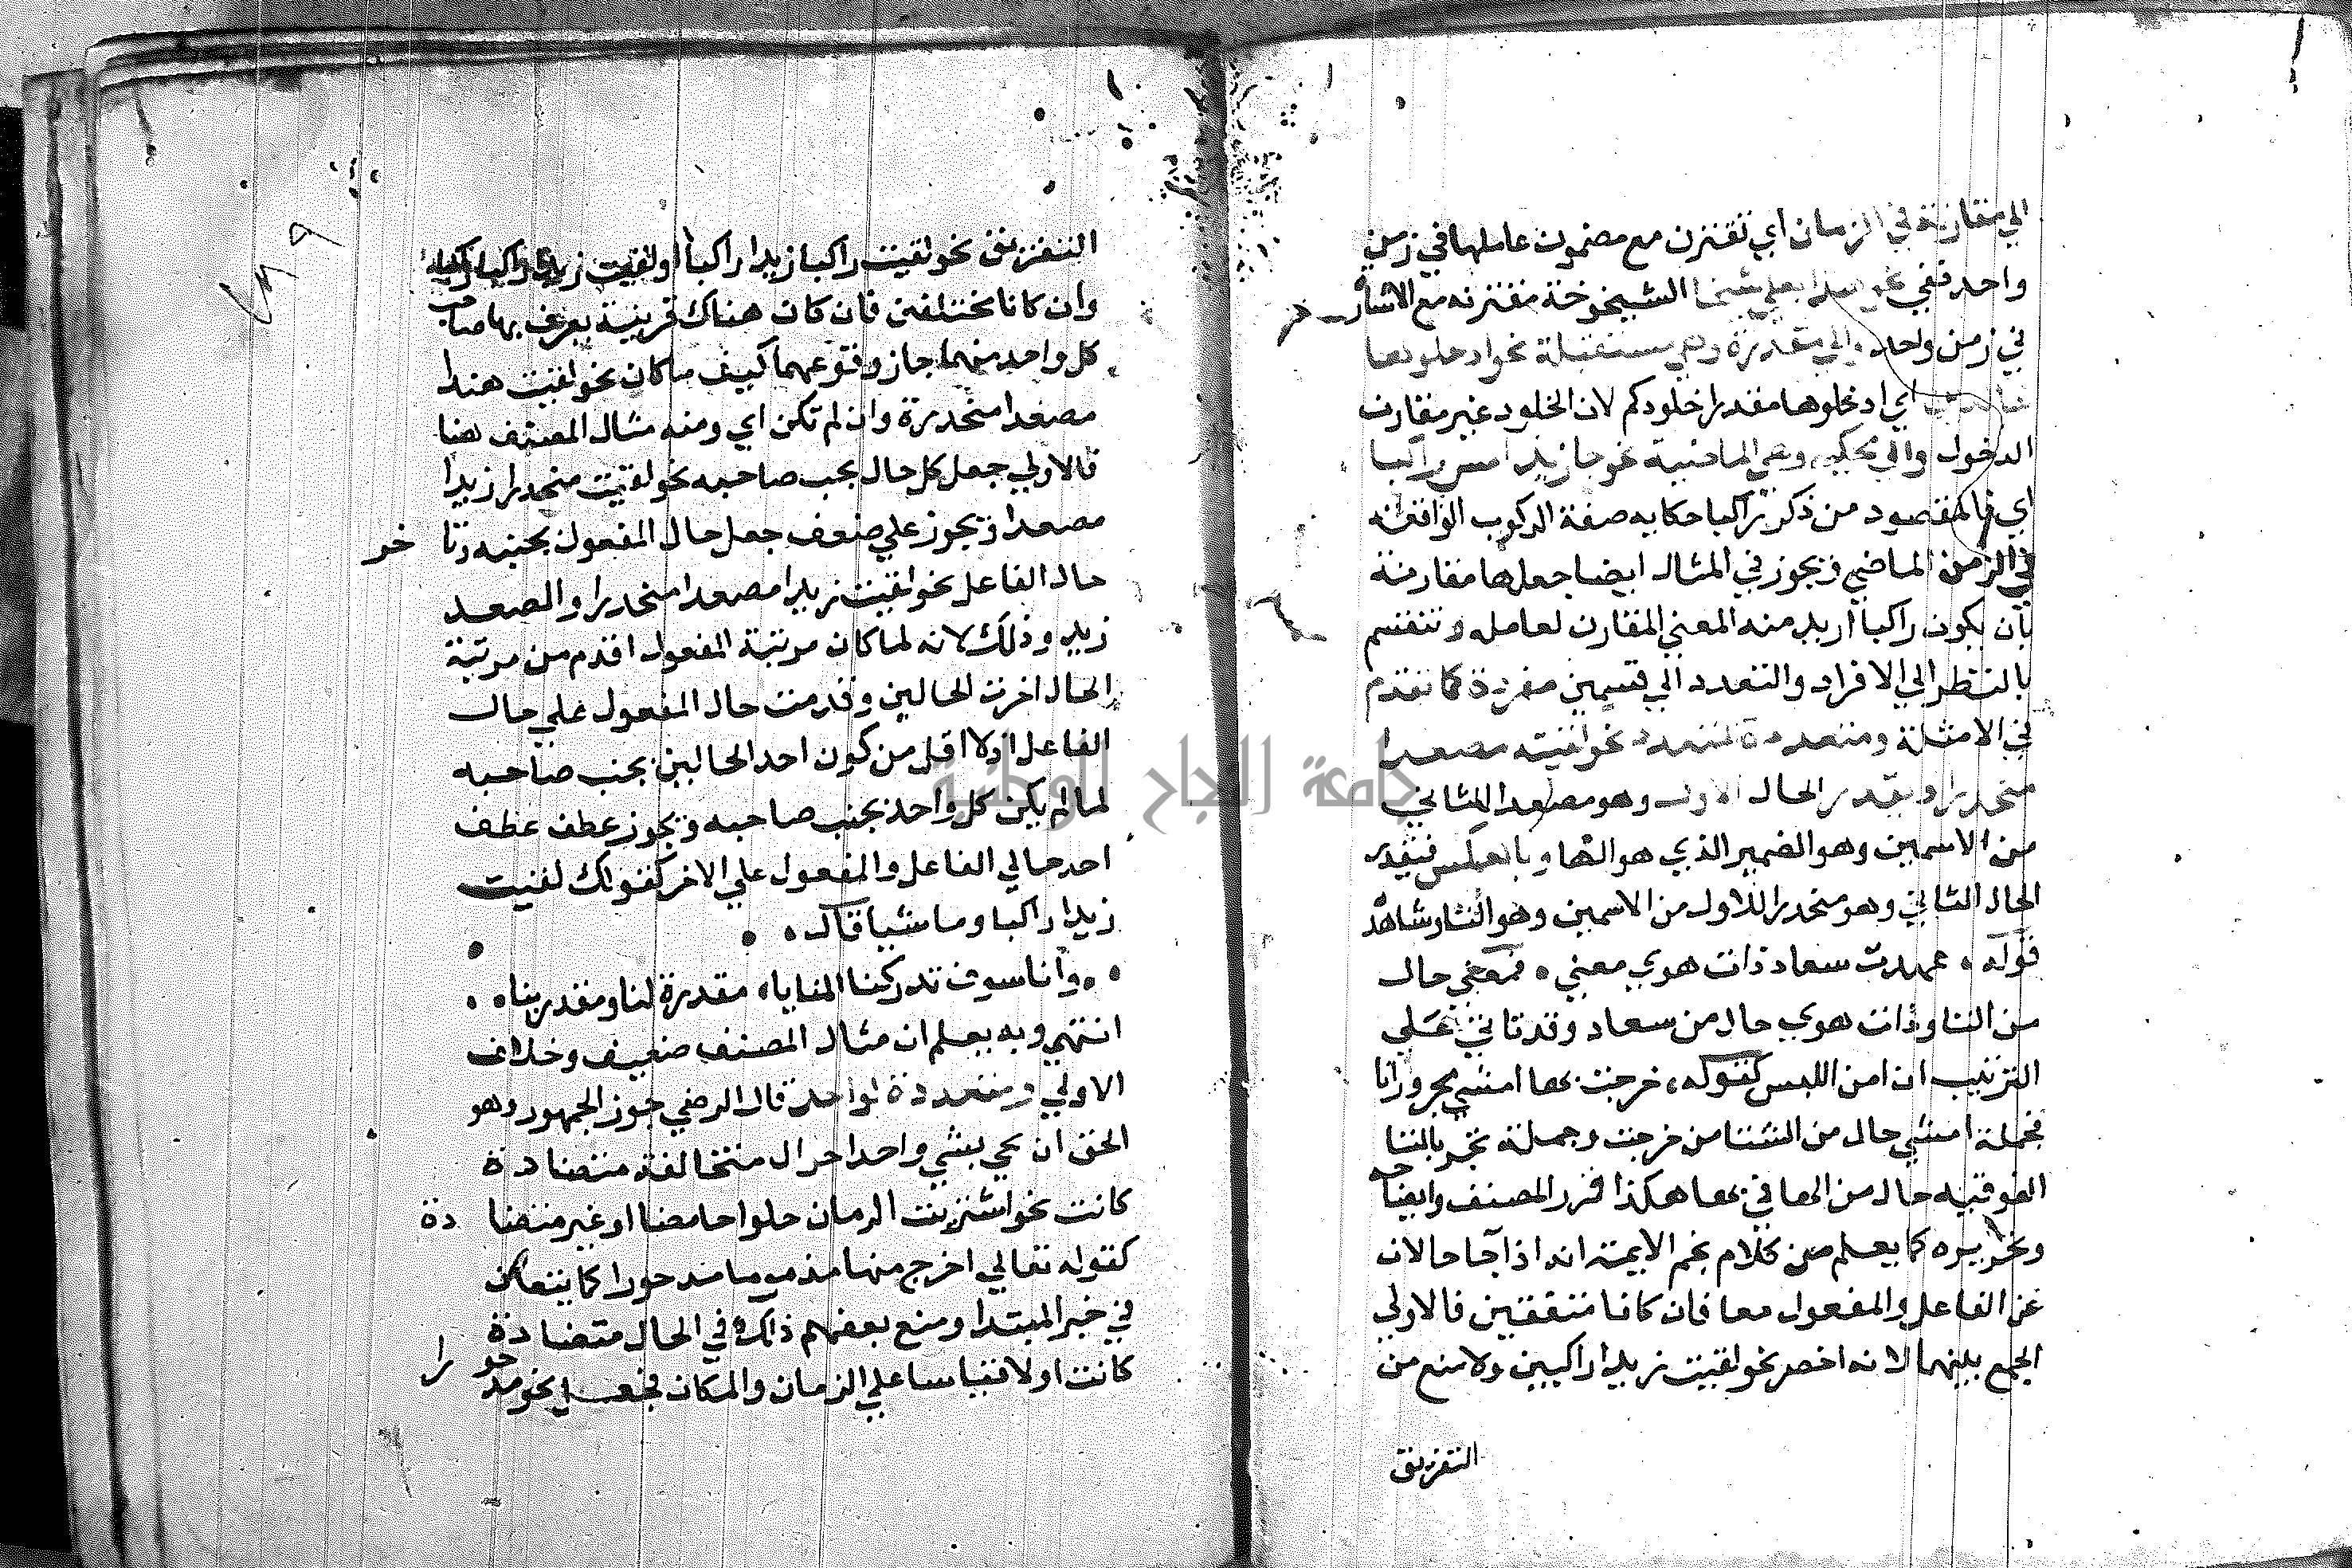 الي مقارنة في الزمان اي تقترن مع مضمون عاملها في زمن
واحد ففي نحو هذا بعلي شيخا الشيخوخة مقترنه مع الاشار
في زمن واحد والي مقدرة وهي مستقبلة نحو ادخلوها
خالدين اي ادخلوها مقدرا خلودكم لان الخلود غير مقارن
الدخول والي محكية وهي الماضية نحو جا زيد امس راكبا
اي فالمقصود من ذكر راكبا حكايه صفة الركوب الواقعه
في الزمن الماضي ويجوز في المثال ايضا جعلها مقارنة
بان يكون راكبا اريد منه المعني المقارن لعامله وتنقسم
بالنظر الي الافراد والتعدد الي قسمين مفردة كما تقدم
في الامثلة ومتعددة لمتعدد نحو لقيته مصعدا
منحدرا ويقدر الحال الاول وهو مصعدا للثاني
من الاسمين وهو الضمير الذي هو الها وبالعكس فيقدر
الحال الثاني وهو منحدرا للاول من الاسمين وهو التا وشاهد
قوله عهدت سعاد ذات هوي معني فمعني حال
من التا وذات هوي حال من سعاد وقد تاتي علي
الترتيب ان امن اللبس كقوله خرجت بها امشي تجر ورانا
فجملة امشي حال من التا من خرجت وجملة تجر بالتا
الفوقيه حال من الها في بها هكذا قرر المصنف وايضاحه
وتحريره كما يعلم من كلام نجم الايمة انه اذا جا حالان
عن الفاعل والمفعول معا فان كانا متفقين فالاولي
الجمع بينهما لانه اخصر نحو لقيت زيدا راكبين ولا منع من
التفريق
التفريق نحو لقيت راكبا زيدا راكبا او لقيت زيدا راكبا راكبا
وان كانا مختلفين فان كان هناك قرينة يعرف بها صاحب
كل واحد منهما جاز وقوعهما كيف ما كان نحو لقيت هندا
مصعدا منحدرة وان لم تكن اي ومنه مثال المصنف هنا
فالاولي جعل كل حال بجنب صاحبه نحو لقيت منحدرا زيدا
مصعدا ويجوز علي ضعف جعل حال المفعول بجنبه وتا خر
حال الفاعل نحو لقيت زيدا مصعدا منحدرا والمصعد
زيد وذلك لانه لما كان مرتبة المفعول اقدم من مرتبة
الحال اخرت الحالين وقدمت حال المفعول علي حال
الفاعل اولا اقل من كون احد الحالين بجنب صاحبه
لما لم يكن كل واحد بجنب صاحبه ويجوز عطف عطف
احد حالي الفاعل والمفعول علي الاخر كقولك لقيت
زيدا راكبا وماشيا قال
وانا سوف تدركنا المنايا مقدرة لنا ومقدرينا
انتهي وبه يعلم ان مثال المصنف ضعيف وخلاف
الاولي ومتعددة لواحد قال الرضي جوز الجمهور وهو
الحق ان يجي بشي واحد احوال متخالفة متضادة
كانت نحو اشتريت الرمان حلوا حامضا او غير متضا دة
كقوله تعالي اخرج منها مذموما مدحورا كما يتعدد
في خبر المبتدا ومنع بعضهم ذلك في الحال متضادة
كانت اولا قياسا علي الزمان والمكان فجعل نحو مدحو را